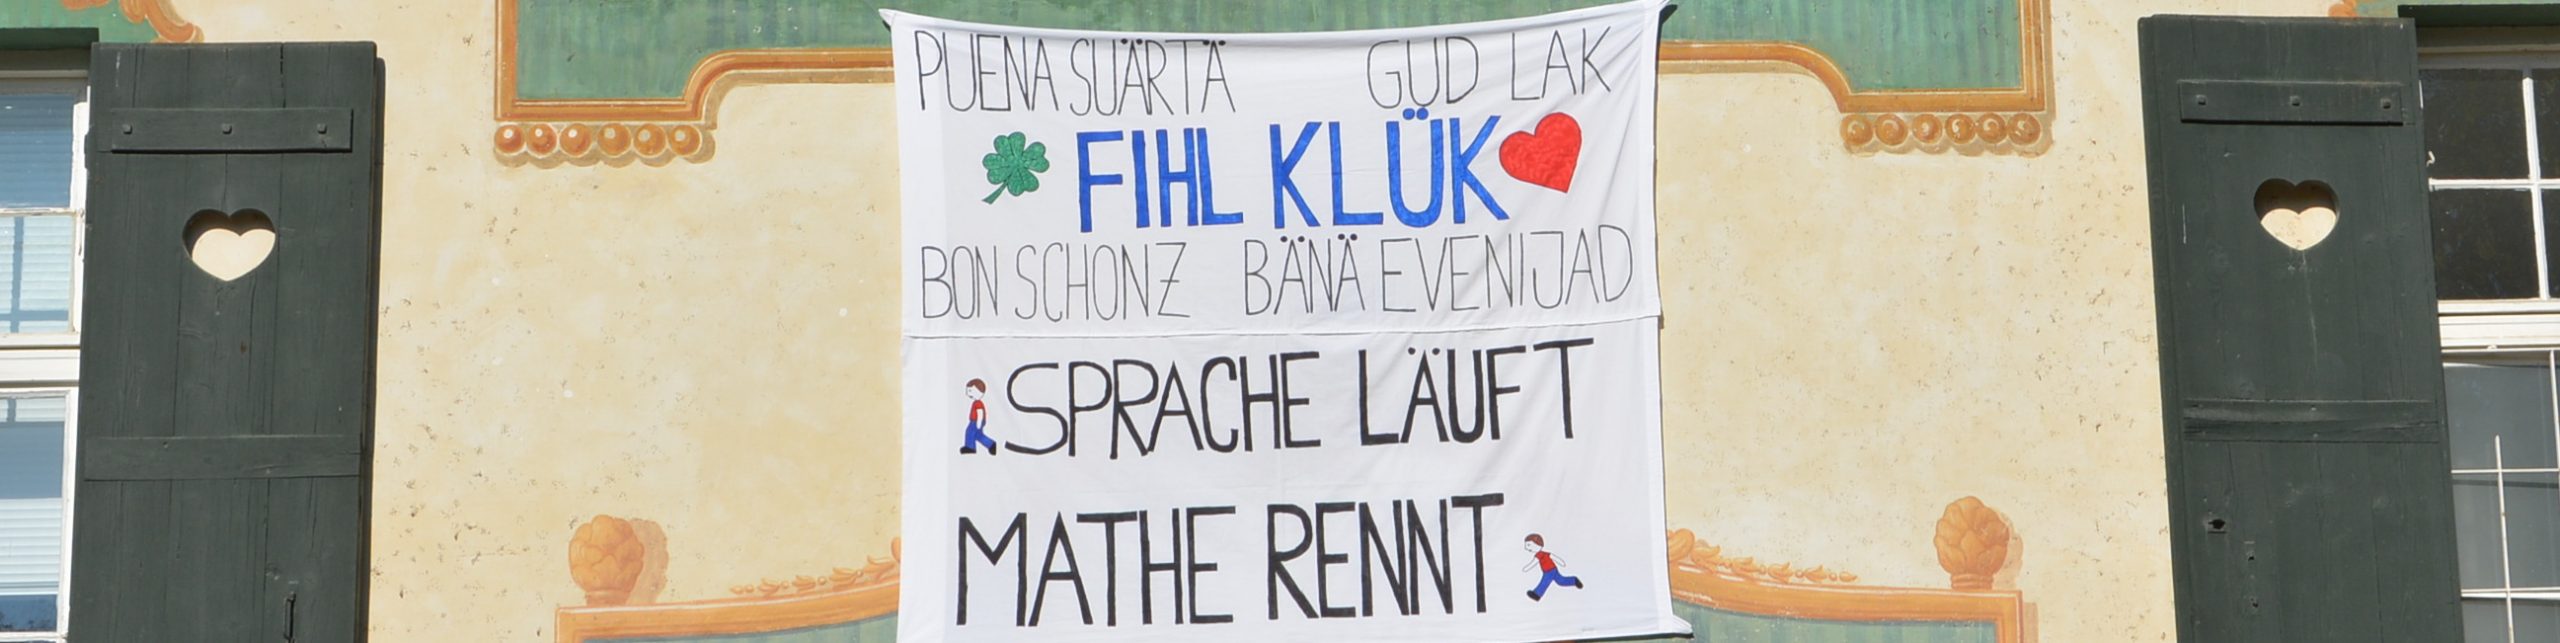 PUENA SUÄRTÄ GUD LAK
FIHL KLÜK
BON SCHONZ BÄNÄ EVENIJAD
SPRACHE LÄUFT
MATHE RENNT